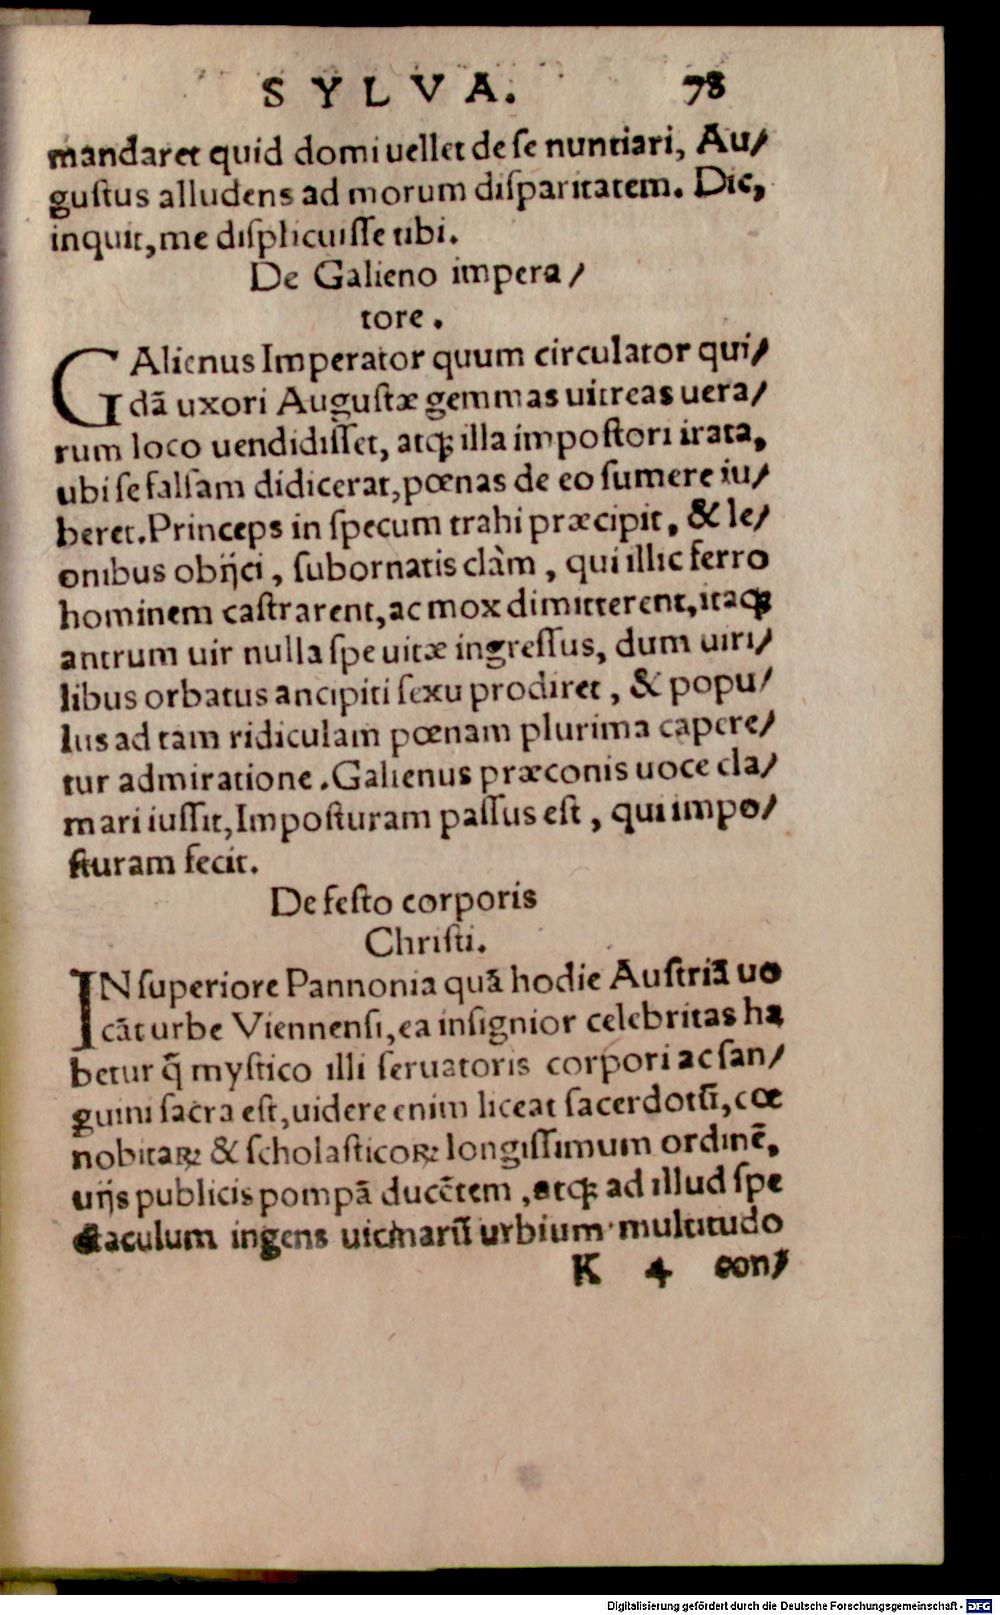 SYLVA. 78
mandaret quid domi uellet de se nuntiari, Au/
gustus alludens ad morum disparitatem. Dic,
inquit, me displicuisse tibi.
De Galieno impera/
tore.
GAlienus Imperator quum circulator qui/
dã uxori Augustæ gemmas uitreas uera/
rum loco uendidisset, atq; illa impostori irata,
ubi se falsam didicerat, pœnas de eo sumere iu/
beret. Princeps in specum trahi præcipit, & le/
onibus obijci, subornatis clàm, qui illic ferro
hominem castrarent, ac mox dimitterent, itaq;
antrum uir nulla spe uitæ ingressus, dum uiri/
libus orbatus ancipiti sexu prodiret, & popu/
lus ad tam ridiculam pœnam plurima capere/
tur admiratione. Galienus præconis uoce cla/
mari iussit, Imposturam passus est, qui impo/
sturam fecit.
De festo corporis
Christi.
IN superiore Pannonia quã hodie Austriã uo
cãt urbe Viennensi, ea insignior celebritas ha
betur q̃ mystico illi seruatoris corpori ac san/
guini sacra est, uidere enim liceat sacerdotũ, cœ
nobitaꝝ & scholasticoꝝ longissimum ordinẽ,
uijs publicis pompã ducẽtem, atq; ad illud spe
ctaculum ingens uicinarũ urbium multitudo
K 4 con/
Digitalisierung gefördert durch die Deutsche Forschungsgemeinschaft - DFG